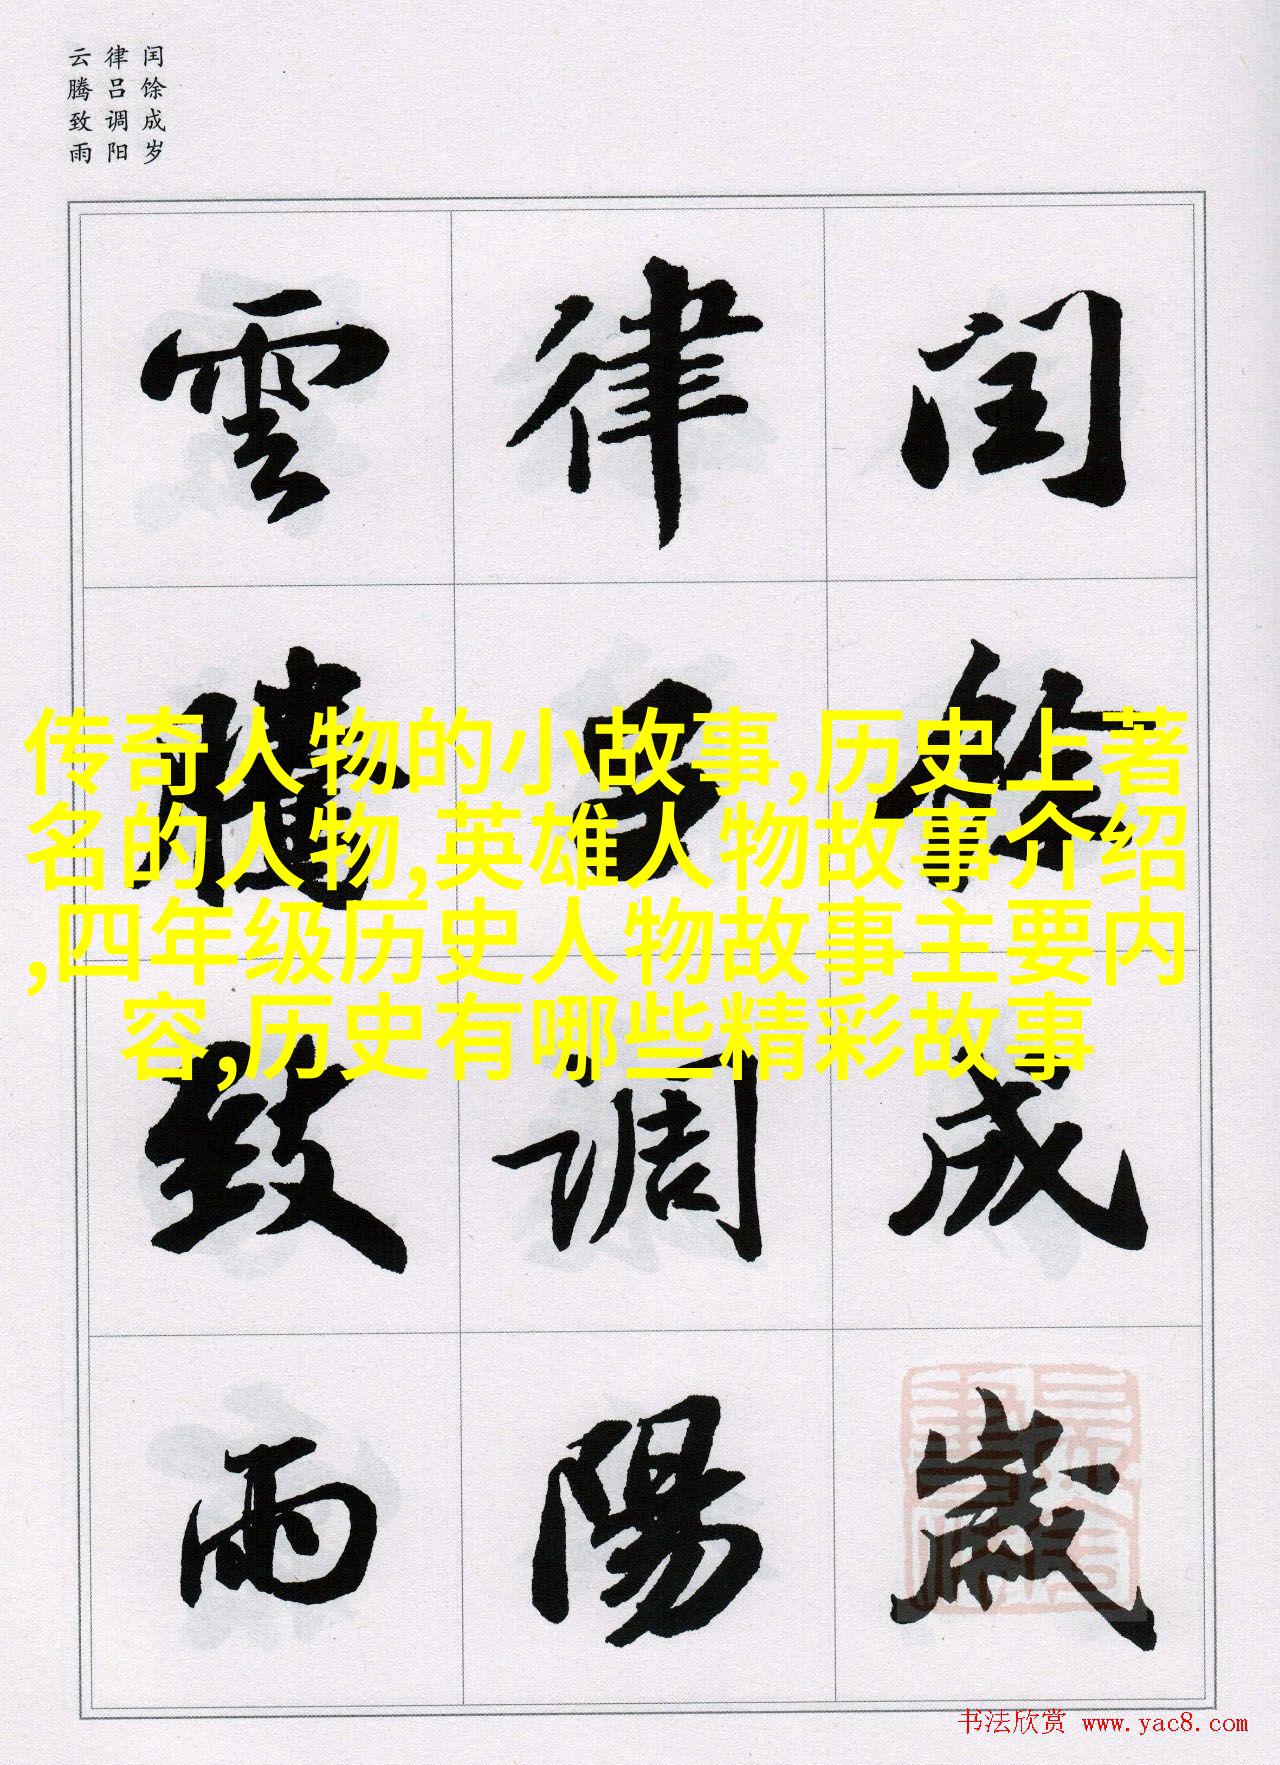 闰馀成岁
律吕调阳
云腾致雨
闰馀成歲
律吕调陽
雲騰致雨
传奇人物的小故事,历史上著
名的人物,英雄人物故事介绍
,四年级历史人物故事主要内
容,历史有哪些精彩故事
书法欣赏 www.yac8.com